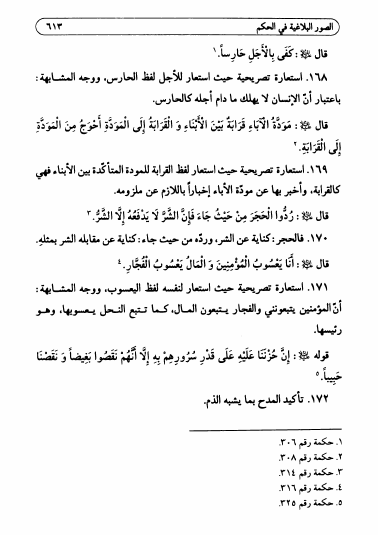 الصور البلاغية في الحكم ٦١٣
قال ﷺ: كَفَى بِالْأَجَلِ حَارِساً.١
١٦٨. استعارة تصريحية حيث استعار للأجل لفظ الحارس، ووجه المشابهة:
باعتبار أنّ الإنسان لا يهلك ما دام أجله كالحارس.
قال ﷺ: مَوَدَّةُ الْآبَاءِ قَرَابَةٌ بَيْنَ الْأَبْنَاءِ وَ الْقَرَابَةُ إِلَى الْمَوَدَّةِ أَحْوَجُ مِنَ الْمَوَدَّةِ
إِلَى الْقَرَابَةِ.٢
١٦٩. استعارة تصريحية حيث استعار لفظ القرابة للمودة المتأكّدة بين الأبناء فهي
كالقرابة، وأخبر بها عن مودّة الأباء إخباراً باللازم عن ملزومه.
قال ﷺ: رُدُّوا الْحَجَرَ مِنْ حَيْثُ جَاءَ فَإِنَّ الشَّرَّ لَا يَدْفَعُهُ إِلَّا الشَّرُّ.٣
١٧٠. فالحجر: كناية عن الشر، وردّه من حيث جاء: كناية عن مقابله الشر بمثله.
قال ﷺ: أَنَا يَعْسُوبُ الْمُؤْمِنِينَ وَ الْمَالُ يَعْسُوبُ الْفُجَّارِ.٤
١٧١. استعارة تصريحية حيث استعار لنفسه لفظ اليعسوب، ووجه المشابهة:
أنّ المؤمنين يتبعونني والفجار يتبعون المال، كما تتبع النحل يعسوبها، وهو
رئيسها.
قوله ﷺ: إِنَّ حُزْنَنَا عَلَيْهِ عَلَى قَدْرِ سُرُورِهِمْ بِهِ إِلَّا أَنَّهُمْ نَقَصُوا بَغِيضاً وَ نَقَصْنَا
حَبِيباً.٥
١٧٢. تأكيد المدح بما يشبه الذم.
١. حكمة رقم ٣٠٦.
٢. حكمة رقم ٣٠٨.
٣. حكمة رقم ٣١٤.
٤. حكمة رقم ٣١٦.
٥. حكمة رقم ٣٢٥.